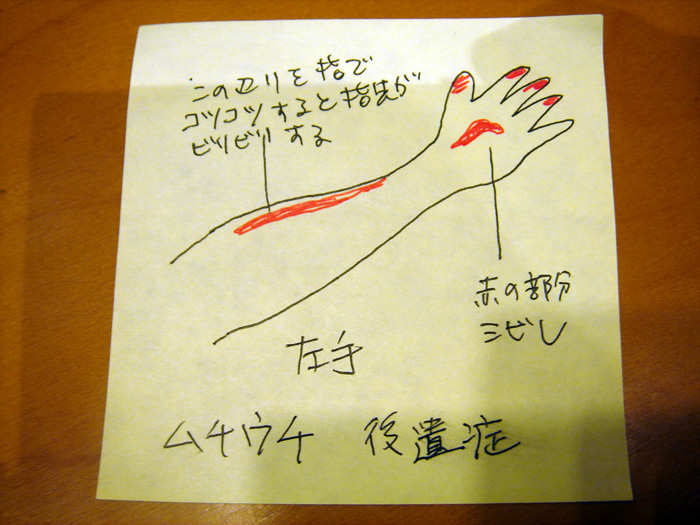 この辺リを指で
コツコツすると指先が
ビリビリする
赤の部分
シビレ
左手
ムチウチ 後遺症